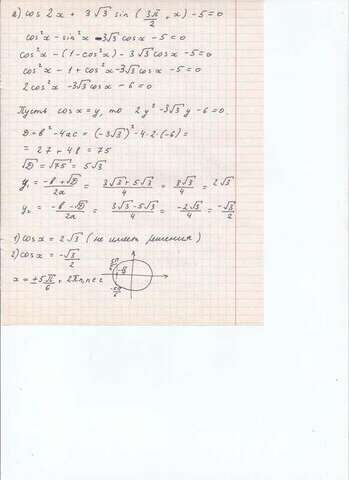 а) cos 2x + 3√3 sin (3π/2, x) - 5 = 0
cos²x - sin²x - 3√3 cosx - 5 = 0
cos²x - (1 - cos²x) - 3√3 cosx - 5 = 0
cos²x - 1 + cos²x - 3√3 cosx - 5 = 0
2cos²x - 3√3 cosx - 6 = 0
Пусть cosx = y, то 2y² - 3√3 y - 6 = 0.
D = в² - 4ac = (-3√3)² - 4·2·(-6) =
= 27 + 48 = 75
√D = √75 = 5√3
y₁ = (-в + √D)/2a = (3√3 + 5√3)/4 = 8√3/4 = 2√3
y₂ = (-в - √D)/2a = (3√3 - 5√3)/4 = -2√3/4 = -√3/2
1) cosx = 2√3 (не имеет решения)
2) cosx = -√3/2
x = ±5π/6 + 2πn, n∈z
5π/6
-√3/2
-5π/6